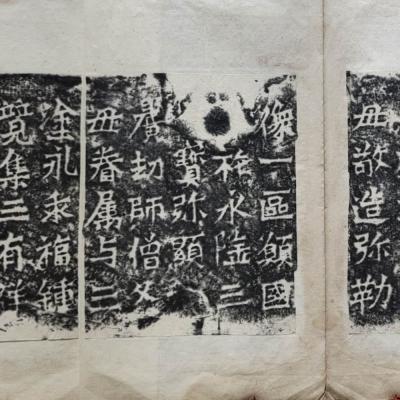 母敬造弥勒
像一區願國
祚永隆三
寶弥顯
曠劫師僧父
母眷属与三
塗永乖福鍾
竟集三有群